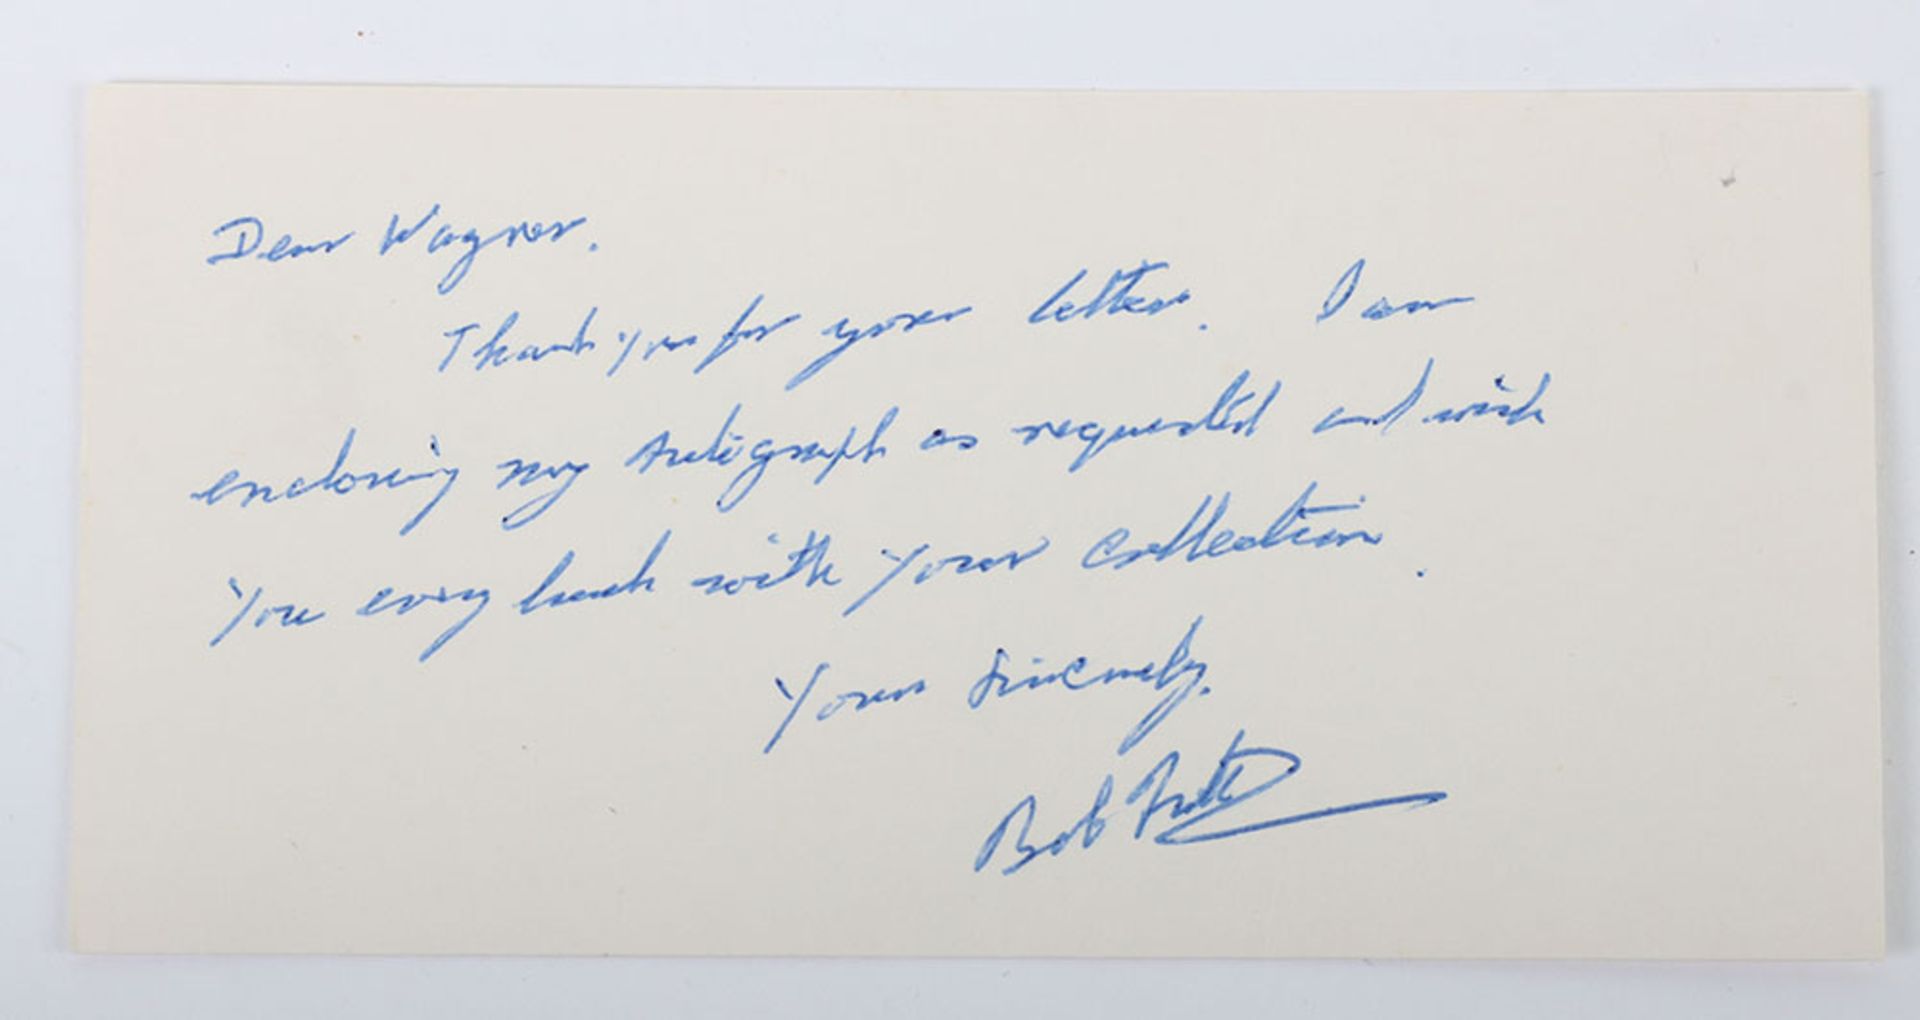 Dear Wagner.
Thank you for your letter. I am
enclosing my Autograph as requested and wish
You every luck with Your Collection.
Yours Sincerely,
Bob